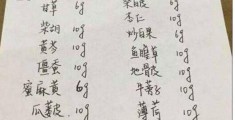 甘草 6g
柴胡 10g 杏仁 10g
黄芩 10g 炒白果 6g
僵蚕 10g 鱼腥草 10g
蜜麻黄 6g 地骨皮 10g
瓜蒌皮 10g 牛蒡子 10g
薄荷 10g